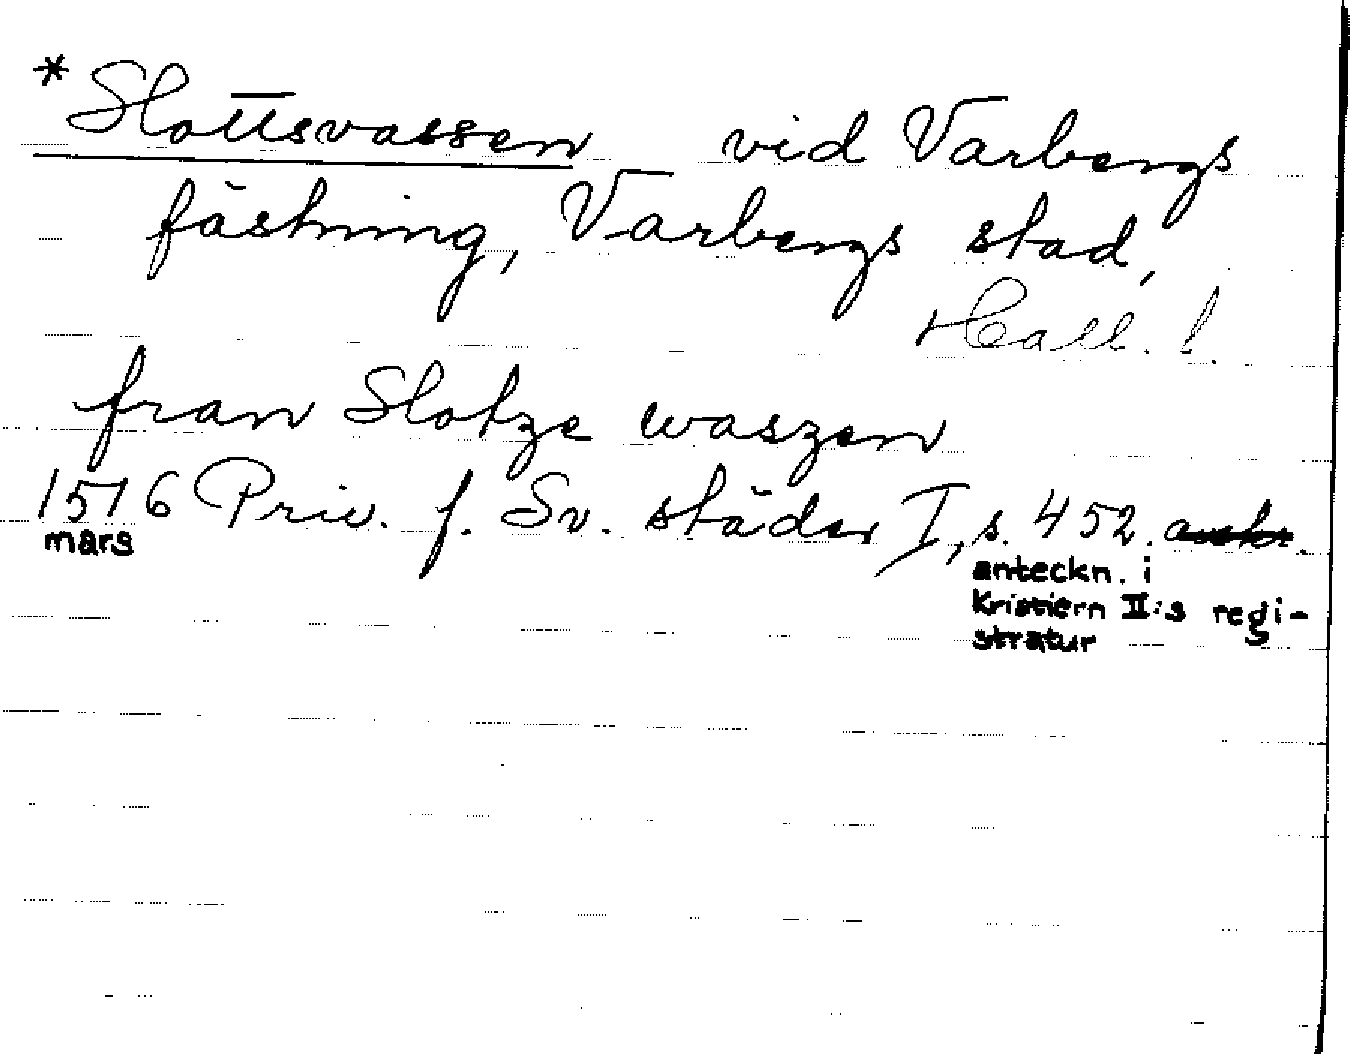 *Slottsvassen vid Varbergs
fästning, Varbergs stad,
Hall. l.
fran Slotze waszen
1516 Priv. f. Sv. städer I, s. 452.
mars
anteckn. i
Kristiern II:s regi-
stratur